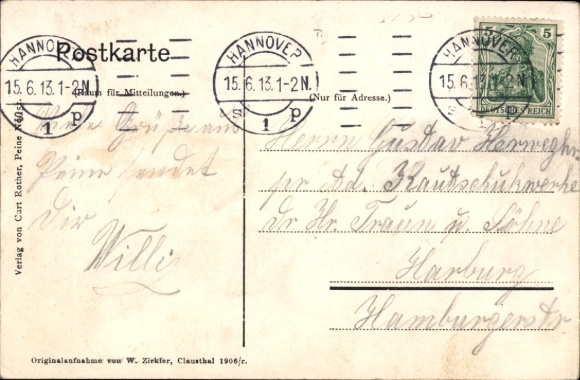 Postkarte
(Raum für Mitteilungen.)
(Nur für Adresse.)
HANNOVER
15.6.13.1-2N.
S 1 p
HANNOVER
15.6.13.1-2N.
S 1 p
HANNOVER
15.6.13.1-2N.
5 5
DEUTSCHES REICH
Viele Grüße aus
Peine sendet
Dir
Willi
Herrn Gustav
pr Ad. Kautschukwerke
dr Hr Traun u. Söhne
Harburg
Hamburgerstr
Verlag von Curt Rother, Peine
Originalaufnahme von W. Zirkler, Clausthal 1906/r.